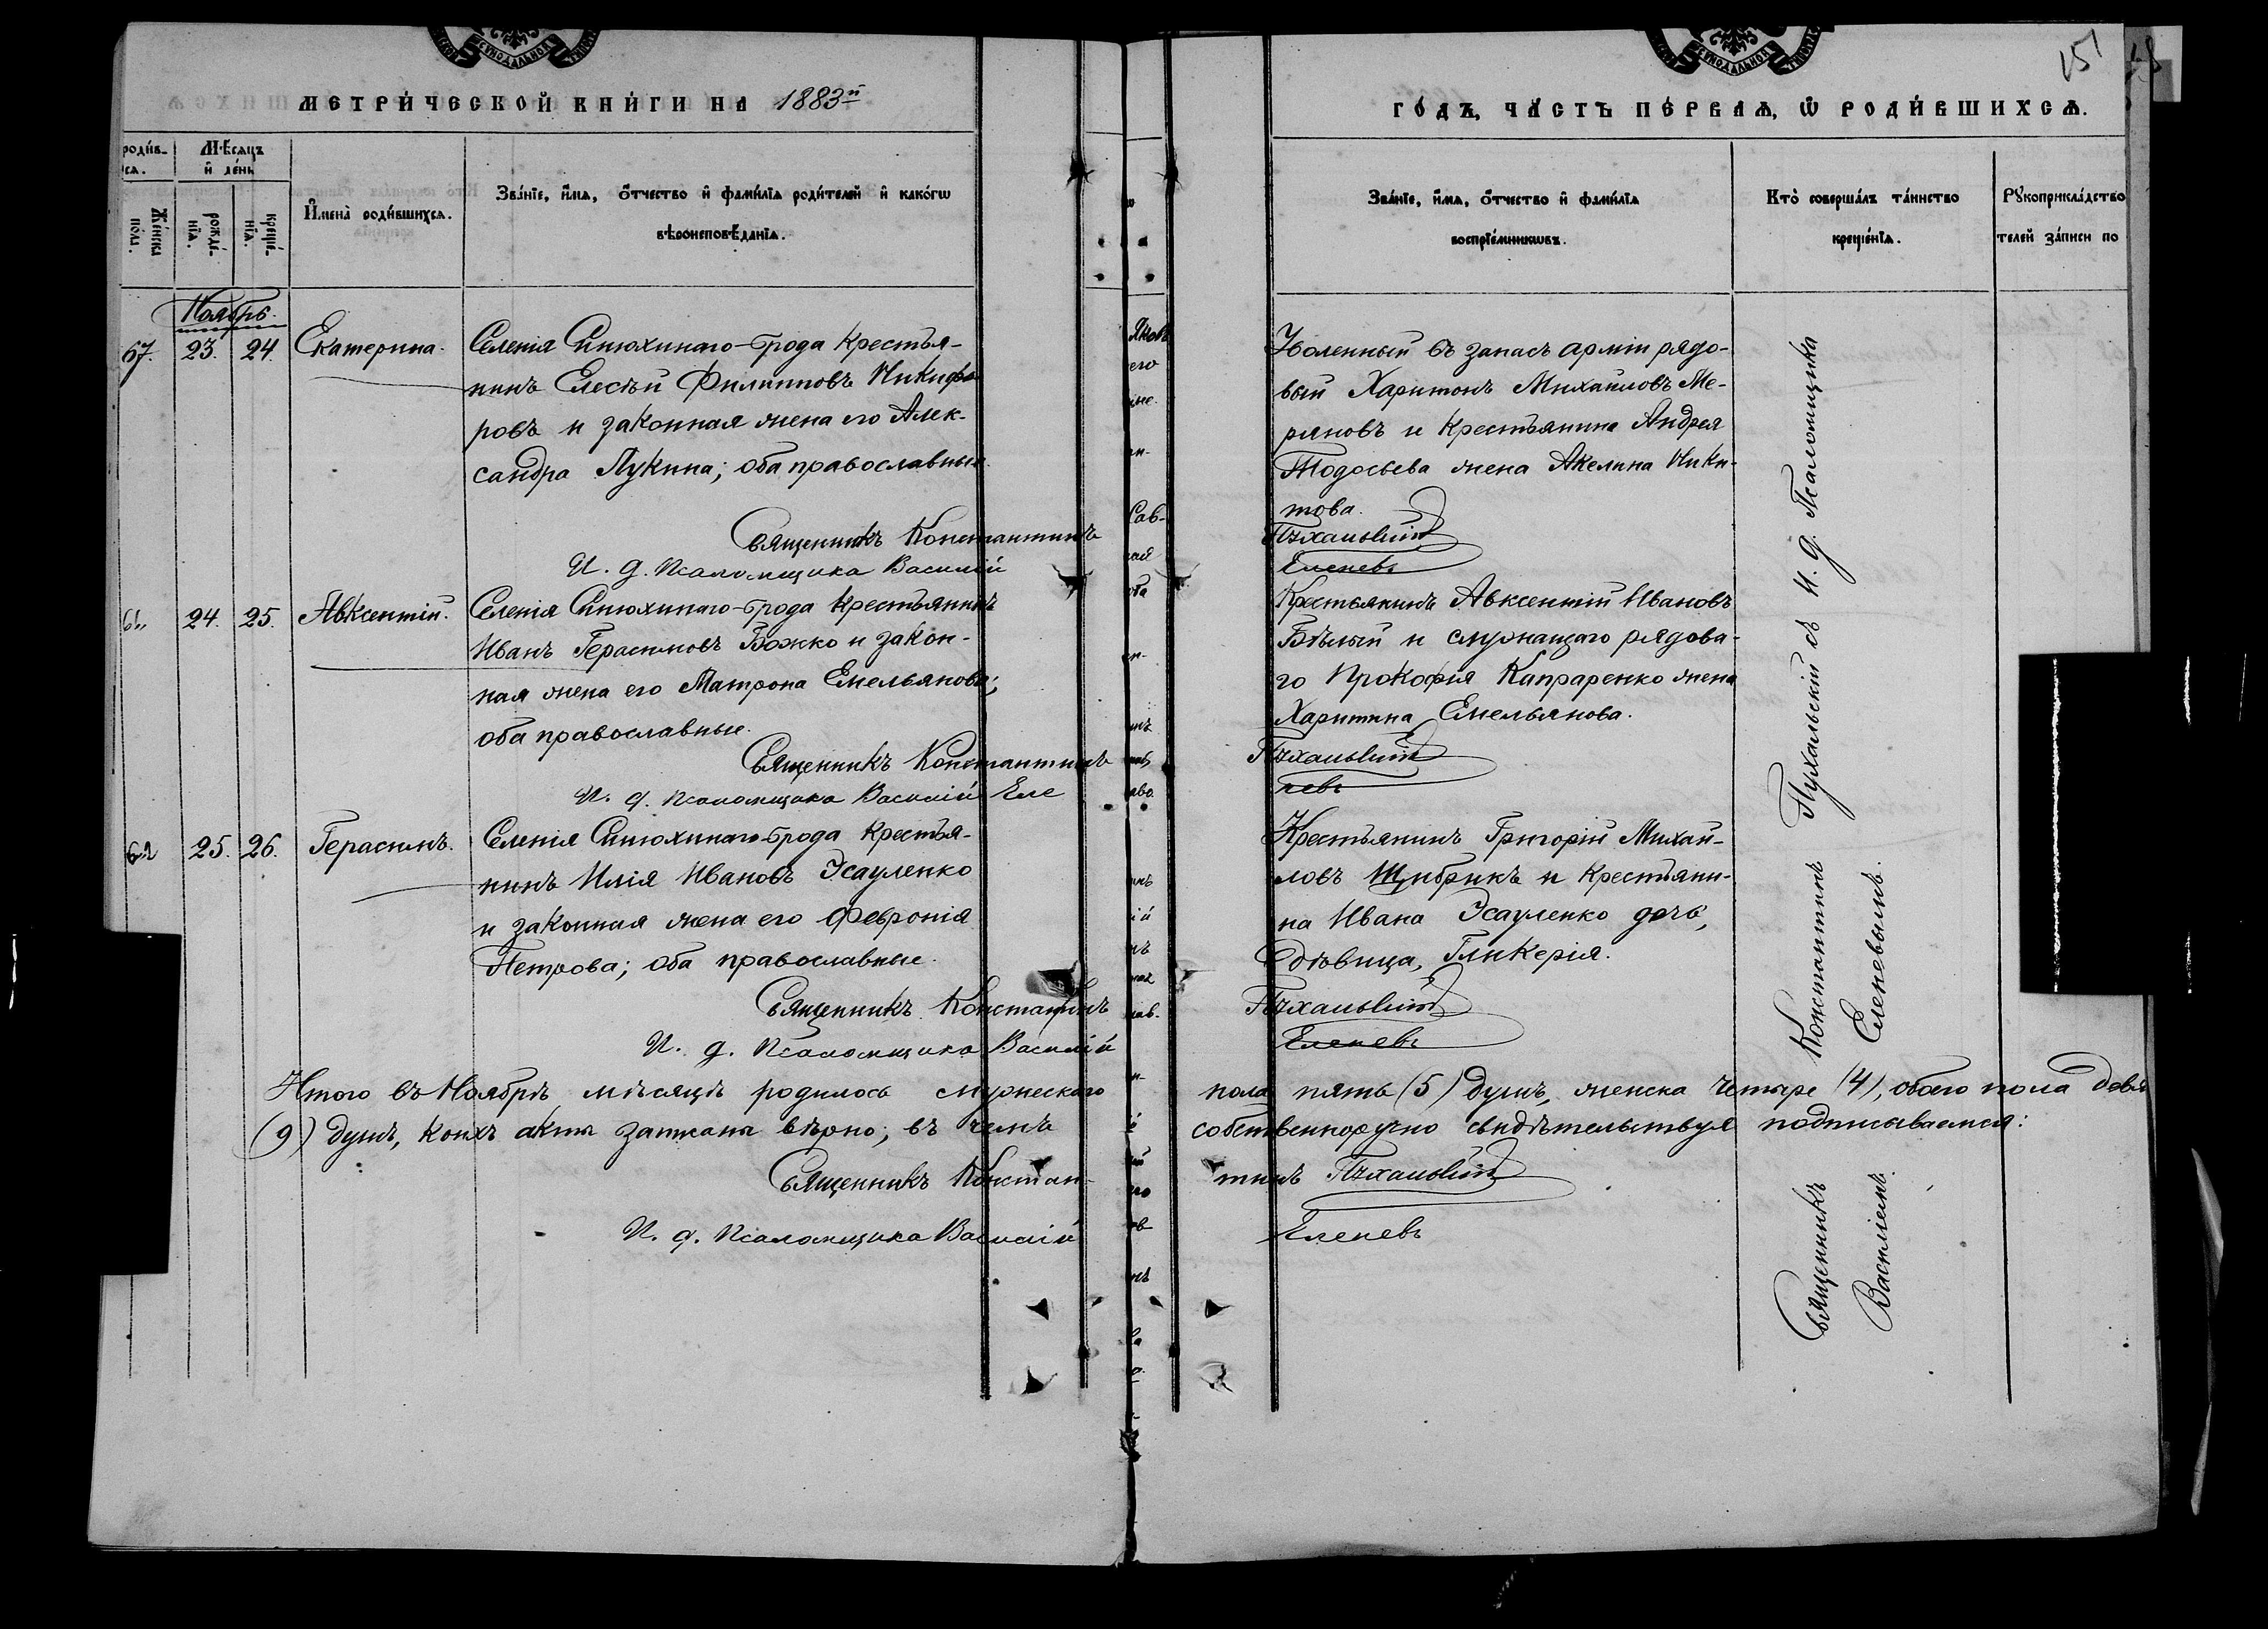 151
МЕТРИ́ЧЕСКОЙ КНИ́ГИ НА 1883й
ГО́ДЪ, ЧА́СТЬ ПЕ́РВАѦ, Ѡ РОДИ́ВШИХСѦ.
роди́в-
сѧ.
Мѣ́сѧцъ
и де́нь
Же́нска
по́ла.
рожде́-
нїѧ.
креще́-
нїѧ.
Имена̀ роди́вшихсѧ.
Зва́нїе, и́мѧ, о́тчество и фами́лїѧ роди́телей и како́гѡ
вѣроисповѣ́данїѧ.
Зва́нїе, и́мѧ, о́тчество и фами́лїѧ
воспрїе́мникѡвъ.
Кто̀ соверша́лъ та́инство
креще́нїѧ.
Рꙋкоприкла́дство
телей за́писи по
Ноябрь.
67. 23. 24. Екатерина.
Селенія Синюхинаго-Брода Крестья-
нинъ Елесѣй Филипповъ Никифо
ровъ и законная жена его Алек-
сандра Лукина; оба православные.
Священникъ Константинъ
И. д. Псаломщика Василій
Уволенный въ запасъ арміи рядо-
вый Харитонъ Михайловъ Ме-
ряновъ и Крестьянина Андрея
Тодосьева жена Акелина Ники-
това.
Пухальскій
Еленевъ
24. 25. Авксентій.
Селенія Синюхинаго-Брода Крестьянинъ
Иванъ Герасимовъ Божко и закон-
ная жена его Матрона Емельянова;
оба православные.
Священникъ Константинъ
И. д. Псаломщика Василій Еле
Крестьянинъ Авксентій Ивановъ
Бѣлый и служащаго рядова-
го Прокофія Капраренко жена
Харитина Емельянова.
Пухальскій
невъ
25. 26. Герасимъ.
Селенія Синюхинаго-Брода Крестья-
нинъ Илія Ивановъ Эсауленко
и законная жена его Февронія
Петрова; оба православные.
Священникъ Константинъ
И. д. Псаломщика Василій
Крестьянинъ Григорій Михай-
ловъ Щибрикъ и Крестьяни-
на Ивана Эсауленко дочь,
дѣвица, Гликерія.
Пухальскій
Еленевъ
Священникъ Константинъ Пухальскій съ И. д. Псаломщика
Василіемъ Еленевымъ.
Итого въ Ноябрѣ мѣсяцѣ родилось мужескаго пола пять (5) душъ, женска четыре (4), обоего пола девя
(9) душъ, коихъ акты записаны вѣрно; въ чемъ собственноручно свидѣтельствуя подписываемся:
Священникъ Констан-
тинъ Пухальскій
И. д. Псаломщика Василій
Еленевъ